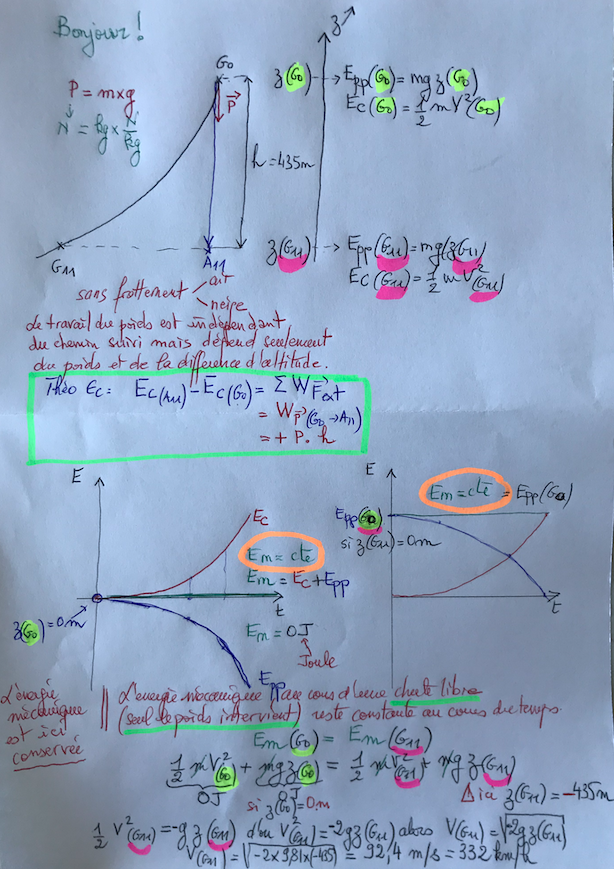 Bonjour !
P = m×g
N = kg × N/kg
G₀
P⃗
h = 435m
G₁₁
A₁₁
z
z(G₀) → Epp(G₀) = mg z(G₀)
Ec(G₀) = 1/2 m V²(G₀)
z(G₁₁) → Epp(G₁₁) = mg(z(G₁₁)
Ec(G₁₁) = 1/2 m V²(G₁₁)
sans frottement
air
neige
Le travail du poids est indépendant
du chemin suivi mais dépend seulement
du poids et de la différence d'altitude.
Théo Ec : Ec(A₁₁) - Ec(G₀) = Σ W F⃗ext
= W P⃗ (G₀ → A₁₁)
= + P. h
E
Ec
Em = cte
Em = Ec + Epp
t
z(G₀) = 0m
Em = 0J
Joule
Epp
E
Em = cte = Epp(G₀)
Epp(G₀)
si z(G₁₁) = 0m
t
L'énergie
mécanique
est ici
conservée
L'énergie mécanique au cours d'une chute libre
(seul le poids intervient) reste constante au cours du temps.
Em(G₀) = Em(G₁₁)
1/2 m V²(G₀) + mg z(G₀) = 1/2 m V²(G₁₁) + m g z(G₁₁)
0J
0J
si z(G₀) = 0m
Δ ici z(G₁₁) = -435m
1/2 V²(G₁₁) = -g z(G₁₁) d'où V²(G₁₁) = -2g z(G₁₁) alors V(G₁₁) = √-2g z(G₁₁)
V(G₁₁) = √-2×9,81×(-435) = 92,4 m/s = 332 km/h